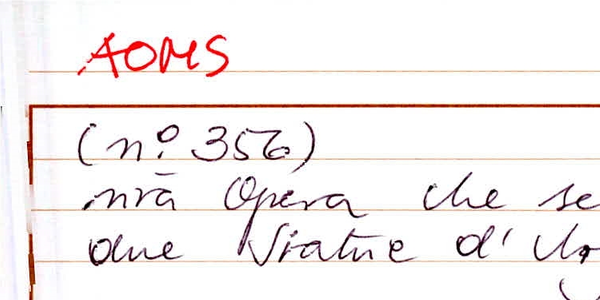 AOMS
(n.º 356)
nrā Opera che se
due Statue d'